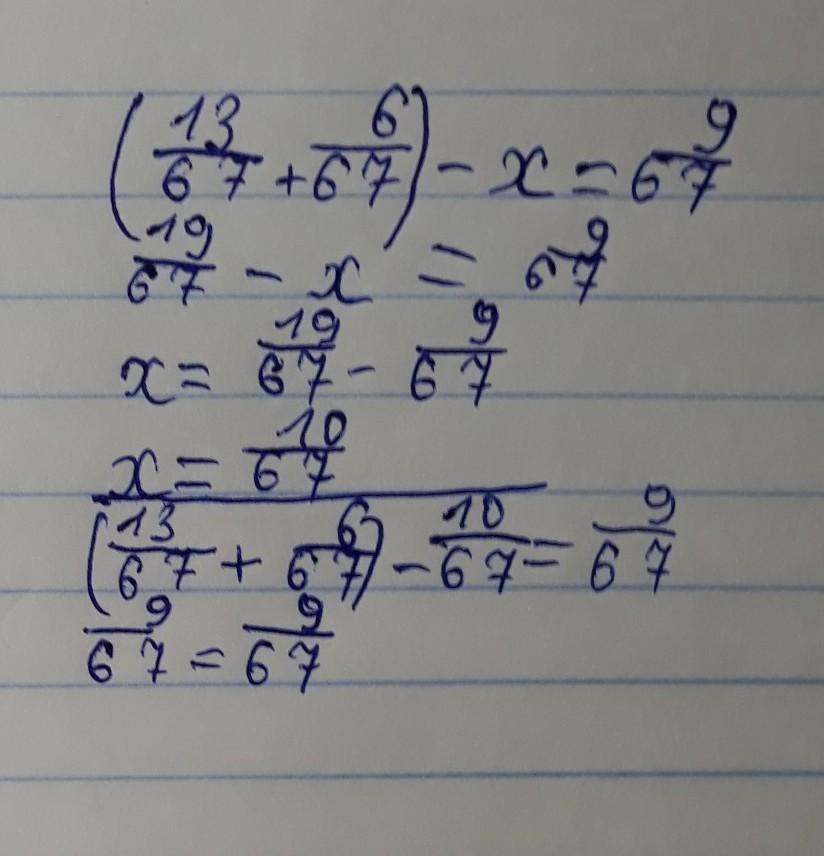 (13/67 + 6/67) - x = 9/67
19/67 - x = 9/67
x = 19/67 - 9/67
x = 10/67
(13/67 + 6/67) - 10/67 = 9/67
9/67 = 9/67